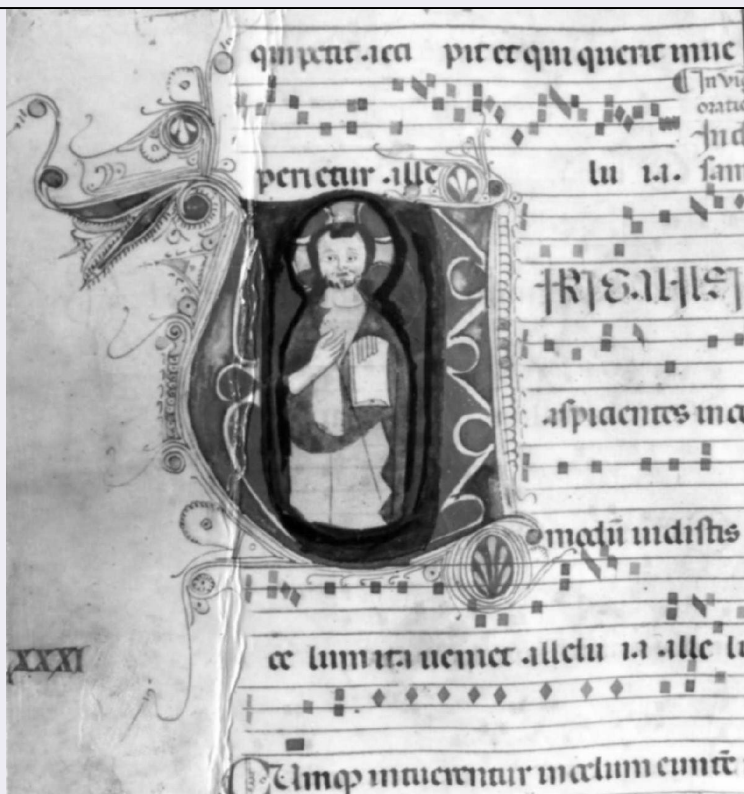 qui petit acci pit et qui querit inue
In vig
oratio
Ind
perietur alle lu ia. sam
IRI GALILEI
aspicientes in ce
modũ uidistis
ce lum ita ueniet allelu ia alle lu
XXXI
Cumqȝ intuerentur in celum eunte